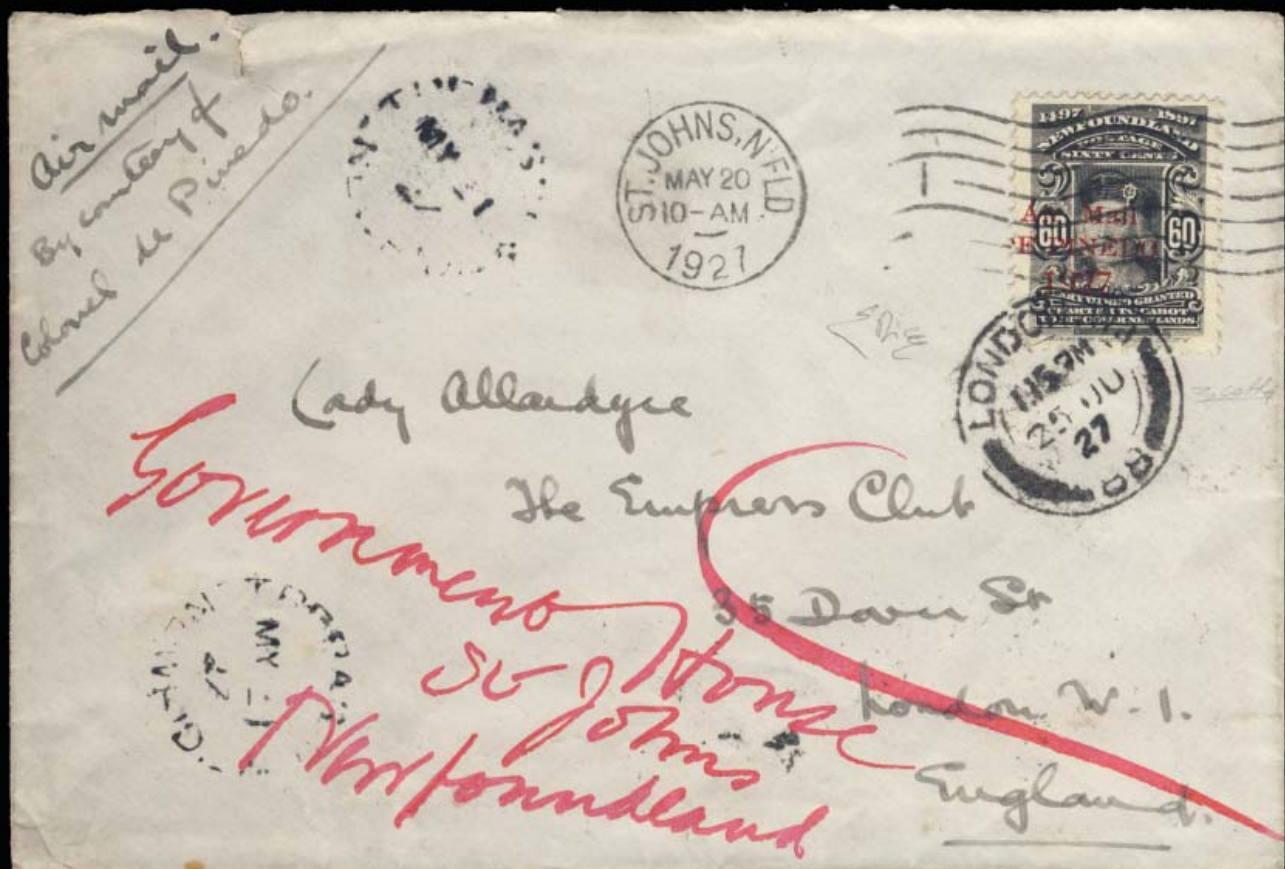 Air mail.
By courtesy of
Colonel de Pinedo.
MY 21
ST. JOHNS, N'FLD
MAY 20
10-AM
1927
1497 1897
NEWFOUNDLAND
POSTAGE
SIXTY CENTS
Air Mail
60 60
DE PINEDO
1927
HENRY VII
GRANTED
CHARTER TO CABOT
LONDON
1.15 PM
25 JU
27
Lady Allardyce
The Empress Club
35 Dover St
London W.1.
England.
Government House
St Johns
Newfoundland
MY 21